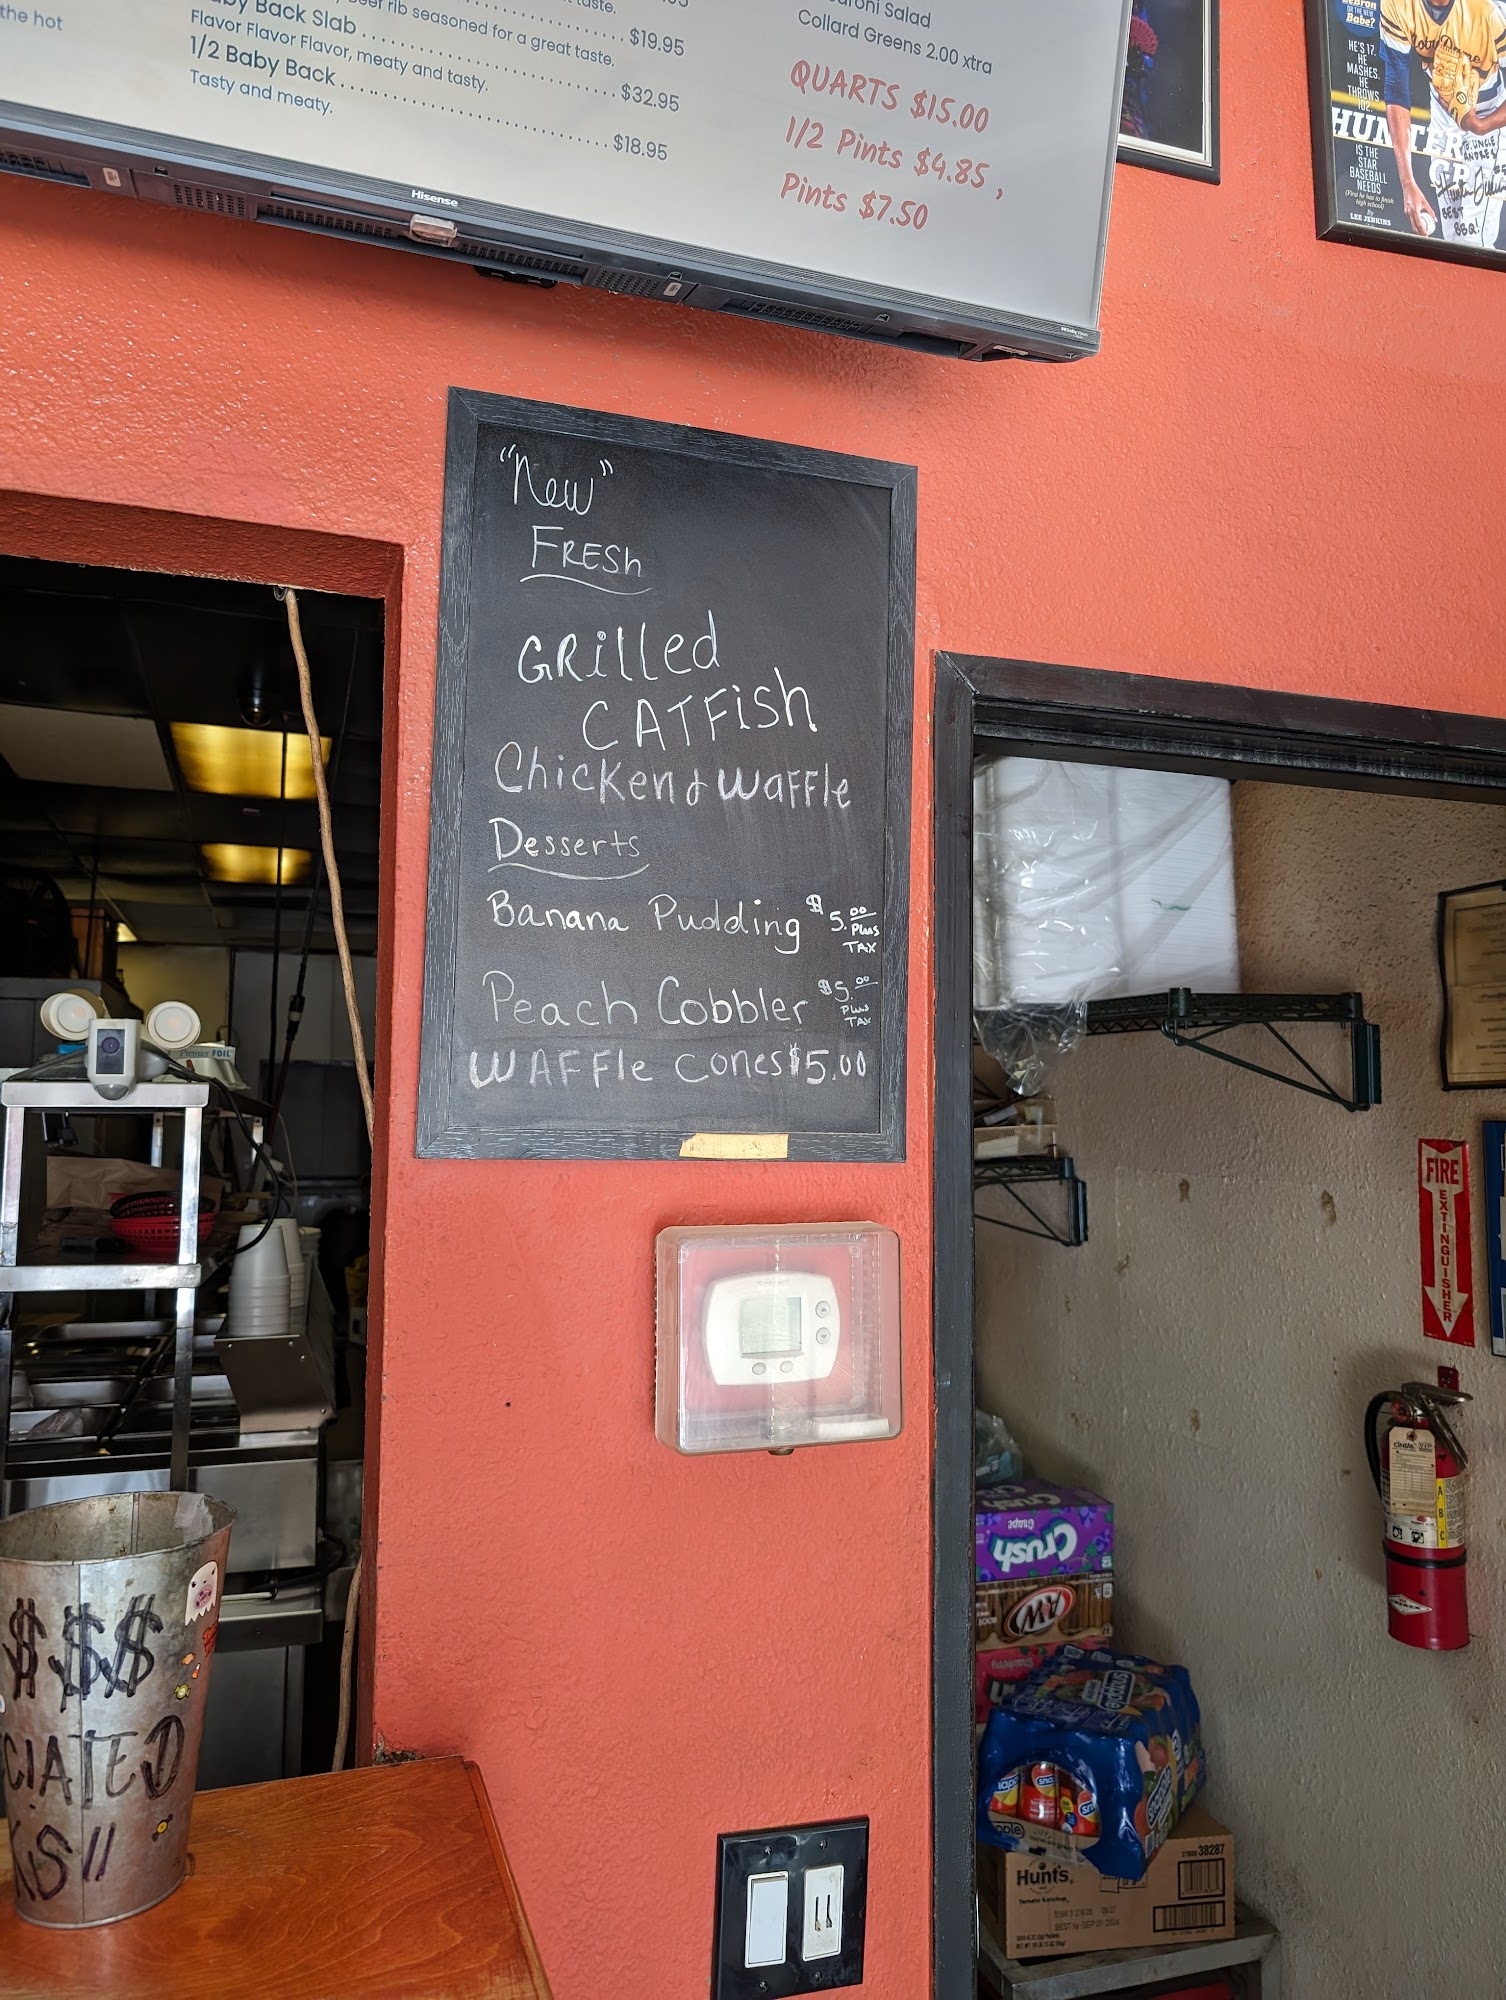 the hot
Beef rib seasoned for a great taste.
$19.95
Baby Back Slab $32.95
Flavor Flavor Flavor, meaty and tasty.
1/2 Baby Back $18.95
Tasty and meaty.
Salad
Collard Greens 2.00 xtra
QUARTS $15.00
1/2 Pints $4.85 ,
Pints $7.50
Hisense
HE'S 17.
HE
MASHES.
HE
THROWS
102.
HUNTER
IS THE
STAR
BASEBALL
NEEDS
(First he has to finish
high school)
By
LEE JENKINS
BEST
BBQ!
"New"
FRESh
GRilled
CATFish
Chicken & Waffle
Desserts
Banana Pudding $5.00 Plus TAX
Peach Cobbler $5.00 Plus TAX
WAFFle Cones $5.00
Premier FOIL
FIRE
EXTINGUISHER
A
B
C
Grape
Crush
A&W
Snapple
Hunt's
Tomato Ketchup
38287
$$$
CIATED
KS!!